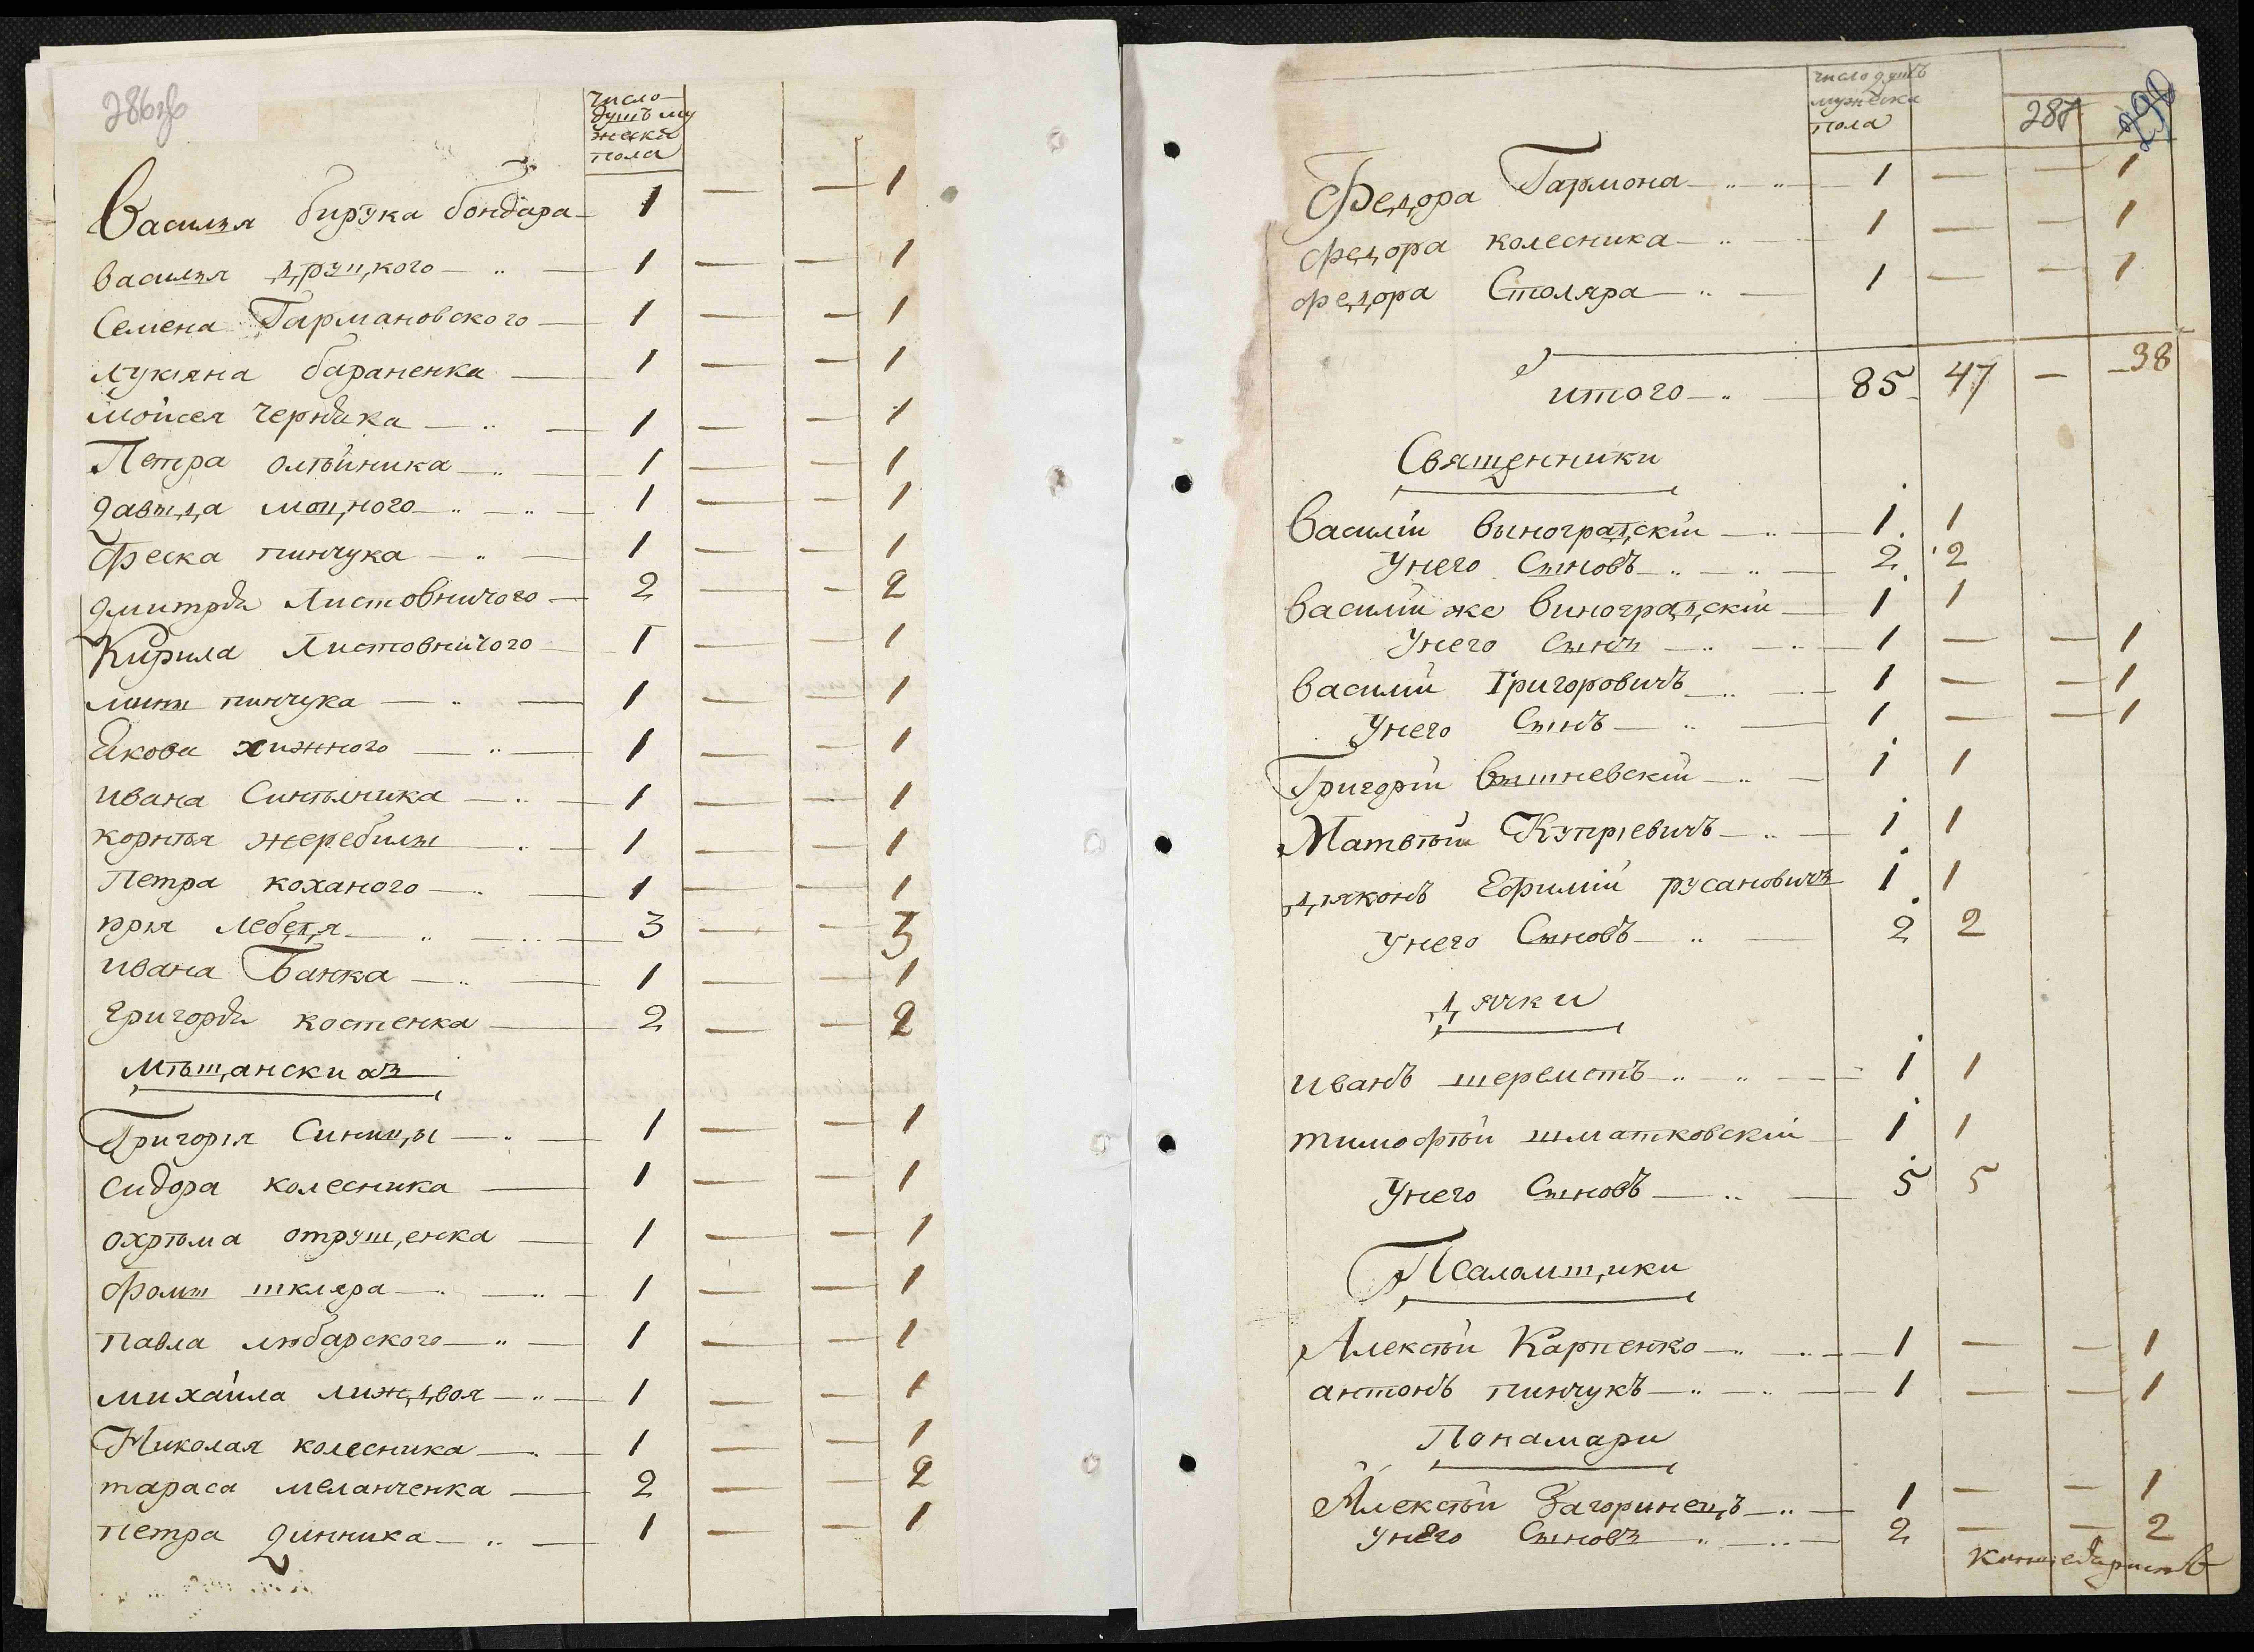 286об
число
душъ му
жеска
пола
Василия бирука бондара 1 — — 1
василия друцкого 1 — — 1
Семена Гармановского 1 — — 1
лукіяна бараненка 1 — — 1
мойсея черняка 1 — — 1
Петра олѣйника 1 — — 1
давыда мощного 1 — — 1
Феска пинчука 1 — — 1
дмитрия Листовничого 2 — — 2
Кирила Листовничого 1 — — 1
пинчука 1 — — 1
Якова хижного 1 — — 1
ивана Синѣлника 1 — — 1
корнѣя жеребилы 1 — — 1
Петра коханого 1 — — 1
юрія лебедя 3 — — 3
ивана Банка 1 — — 1
григория костенка 2 — — 2
мѣщанскихъ
Григорія Синицы 1 — — 1
сидора колесника 1 — — 1
охрѣма отрущенка 1 — — 1
Фомы шкляра 1 — — 1
павла любарского 1 — — 1
михаила лиждвоя 1 — — 1
Николая колесника 1 — — 1
тараса меланченка 2 — — 2
петра динника 1 — — 1
число душъ
мужеска
пола
287
290
Федора Гармона 1 — — 1
федора колесника 1 — — 1
федора Столяра 1 — — 1
итого 85 47 — 38
Священники
Василій выноградскій 1 1
Унего Сыновъ 2 2
василій же виноградскій 1 1
Унего Сынъ 1 — — 1
василій Григоровичъ 1 — — 1
Унего Сынъ 1 — — 1
Григорій вышневскій 1 1
Матвѣй Купріевичъ 1 1
діяконъ Ефимій русановичъ 1 1
Унего Сыновъ 2 2
дячки
иванъ шереметъ 1 1
тимофѣй шматковскій 1 1
Унего Сыновъ 5 5
Псаломщики
Алексѣй Карпенко 1 — — 1
антонъ пинчукъ 1 — — 1
Понамари
Алексѣй Загоринецъ 1 — — 1
Унего Сыновъ 2 — — 2